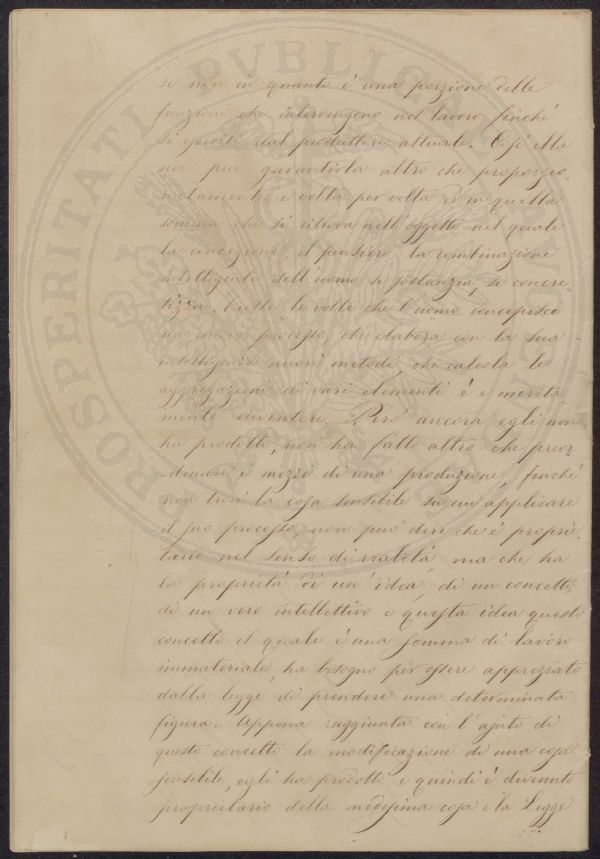 se non in quanto è una porzione delle
funzioni che intervengono nel lavoro finchè
si eserciti dal produttore attuale. Così ella
non può garantirla altro che proporzio-
natamente e volta per volta di in quella
somma che si ritrova nell'oggetto nel quale
la concezione il pensiero la combinazione
intelligente dell'uomo si sostanzia, si concre-
tizza. Tutte le volte che l'uomo concepisce
un nuovo processo, che elabora con la sua
intelligenza nuovi metodi, che calcola le
aggregazioni di vari elementi è e merita-
mente inventore. Però ancora egli non
ha prodotto, non ha fatto altro che preor-
dinare i mezzi di una produzione, finchè
non trovi la cosa sensibile su cui applicare
il suo processo non può dirsi che è proprie-
tario nel senso di realità, ma che ha
la proprietà di un'idea, di un concetto,
di un vero intellettivo e questa idea questo
concetto il quale è una somma di lavoro
immateriale, ha bisogno per essere apprezzato
dalla legge di prendere una determinata
figura. Appena raggiunta con l'ajuto di
questo concetto la modificazione di una cosa
sensibile, egli ha prodotto e quindi è divenuto
proprietario della medesima cosa e la Legge
PROSPERITATI PVBLICAE